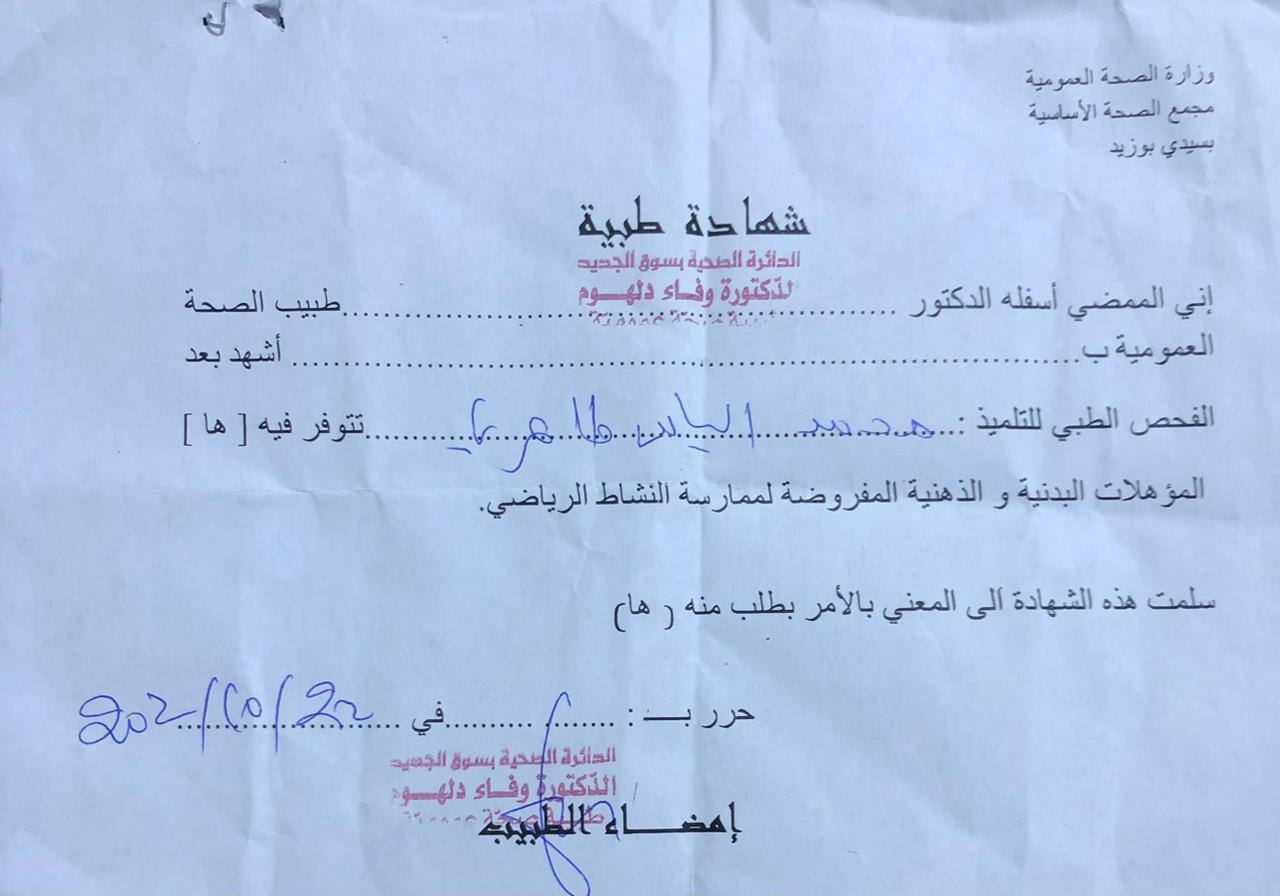 وزارة الصحة العمومية
مجمع الصحة الأساسية
بسيدي بوزيد
شهادة طبية
الدائرة الصحية بسوق الجديد
الدّكتورة وفاء دلهوم
إني الممضي أسفله الدكتور ........................ طبيب الصحة
العمومية ب........................ أشهد بعد
الفحص الطبي للتلميذ : محمد الياس طاهري تتوفر فيه [ ها ]
المؤهلات البدنية و الذهنية المفروضة لممارسة النشاط الرياضي.
سلمت هذه الشهادة الى المعني بالأمر بطلب منه ( ها)
حرر بـ : .................. في
الدائرة الصحية بسوق الجديد
الدّكتورة وفاء دلهوم
إمضاء الطبيب